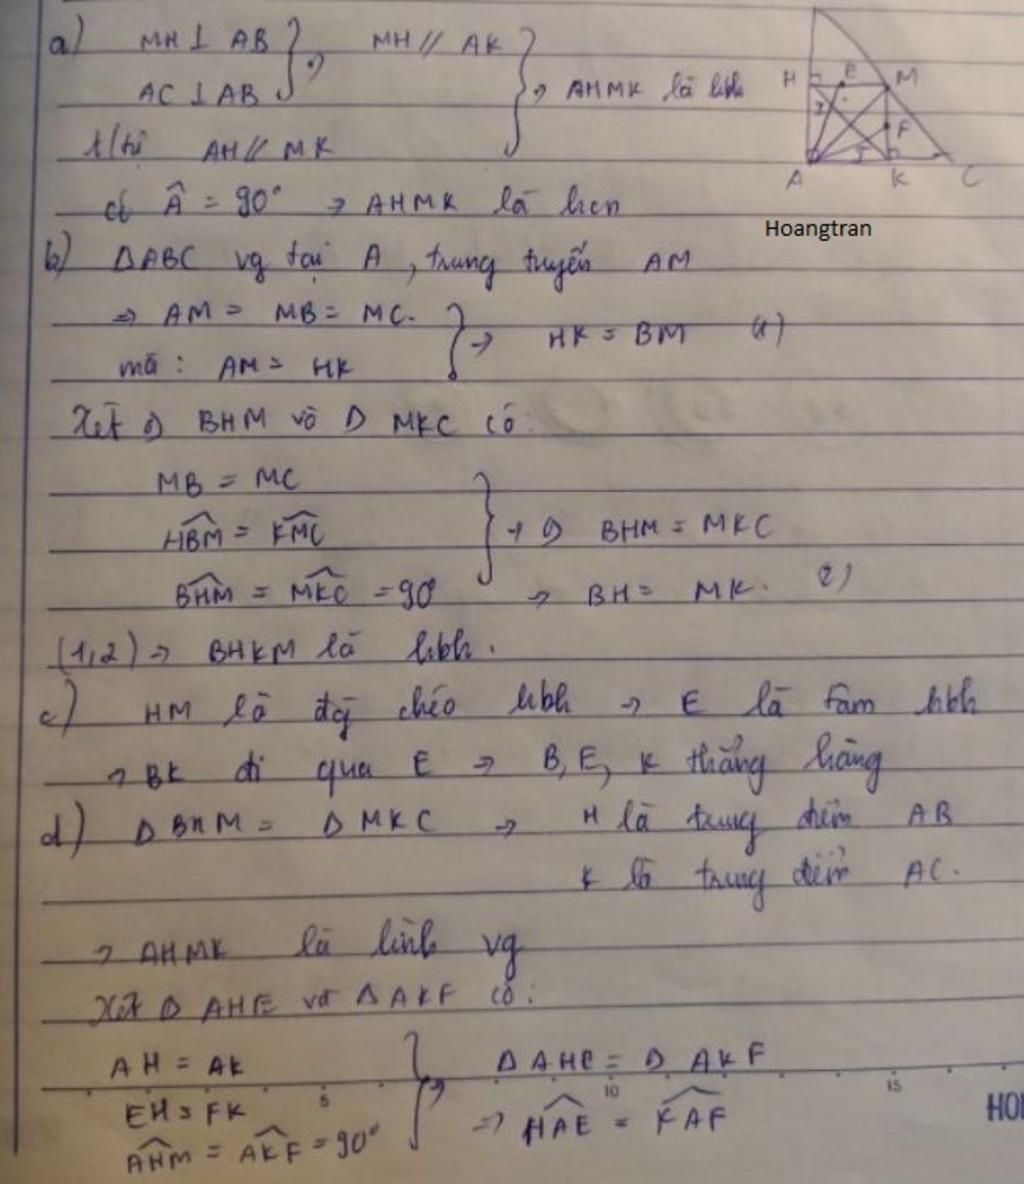 a) MH ⊥ AB } → MH // AK } → AHMK là hbh
AC ⊥ AB
t/tự AH // MK
có Â = 90° → AHMK là hcn
H E M
F
A K C
Hoangtran
b) ΔABC vg tại A, trung tuyến AM
→ AM = MB = MC. } → HK = BM (1)
mà : AM = HK
Xét Δ BHM và Δ MKC có:
MB = MC
HBM = KMC } → Δ BHM = MKC
BHM = MKC = 90° → BH = MK. (2)
(1,2) → BHKM là hbh.
c) HM là đg chéo hbh → E là tâm hbh
→ BK đi qua E → B, E, K thẳng hàng
d) Δ BHM = Δ MKC → H là trung điểm AB
K là trung điểm AC.
→ AHMK là hình vg
Xét Δ AHE và Δ AKF có:
AH = AK } → Δ AHE = Δ AKF
5 10 15
EH = FK → HAE = KAF
AHM = AKF = 90°
HO